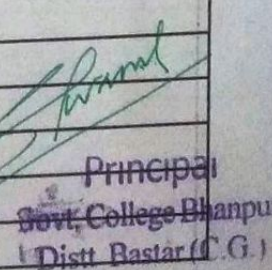 Principal
Govt. College Bhanpu
Distt Bastar (C.G.)